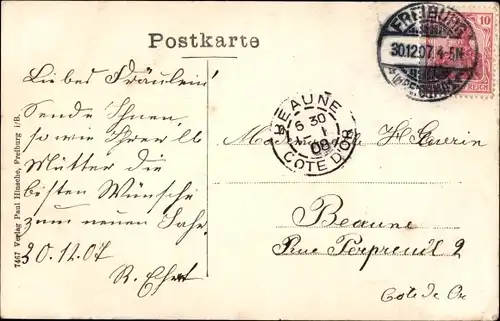 Postkarte
FREIBURG
30.12.07. 4-5N
10
REICH
BEAUNE
6 30
1
08
COTE D'OR
Liebes Fräulein!
Sende Ihnen,
sowie Ihrer lb
Mutter die
besten Wünsche
zum neuen Jahr.
30.12.07
Beaune
Rue Perpreuil 2
Cote de Or
7467 Verlag Paul Hinsche, Freiburg i/B.